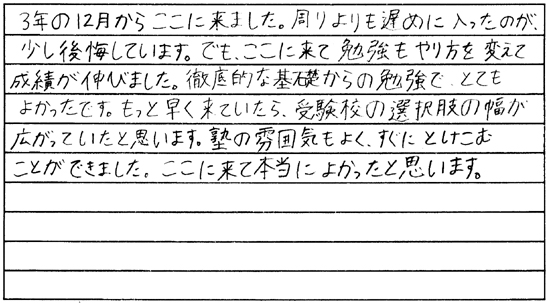 3年の12月からここに来ました。周りよりも遅めに入ったのが、
少し後悔しています。でも、ここに来て勉強もやり方を変えて
成績が伸びました。徹底的な基礎からの勉強で とても
よかったです。もっと早く来ていたら、受験校の選択肢の幅が
広がっていたと思います。塾の雰囲気もよく、すぐにとけこむ
ことができました。ここに来て本当によかったと思います。